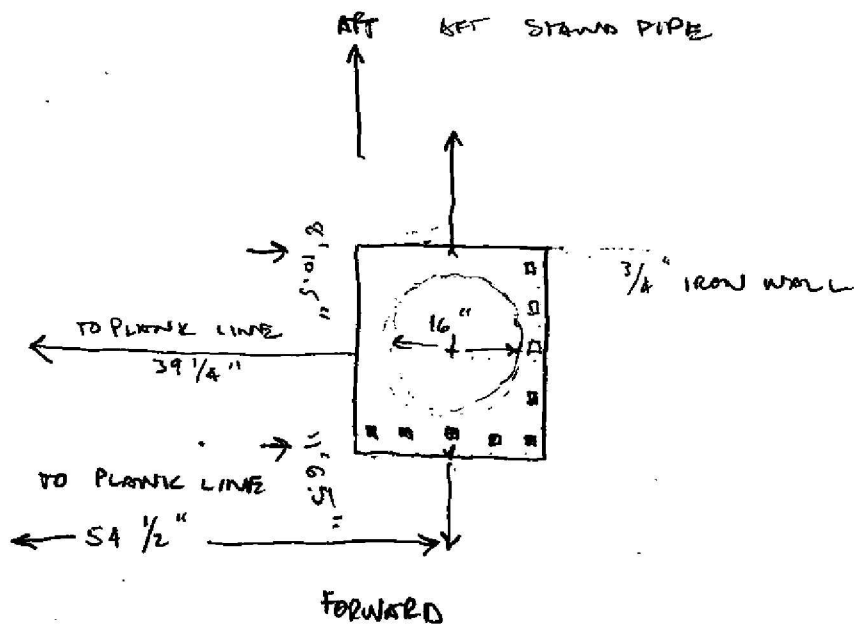 AFT AFT STAND PIPE
8' 10.5"
3/4" IRON WALL
16"
TO PLANK LINE
39 1/4"
11' 6.5"
TO PLANK LINE
54 1/2"
FORWARD